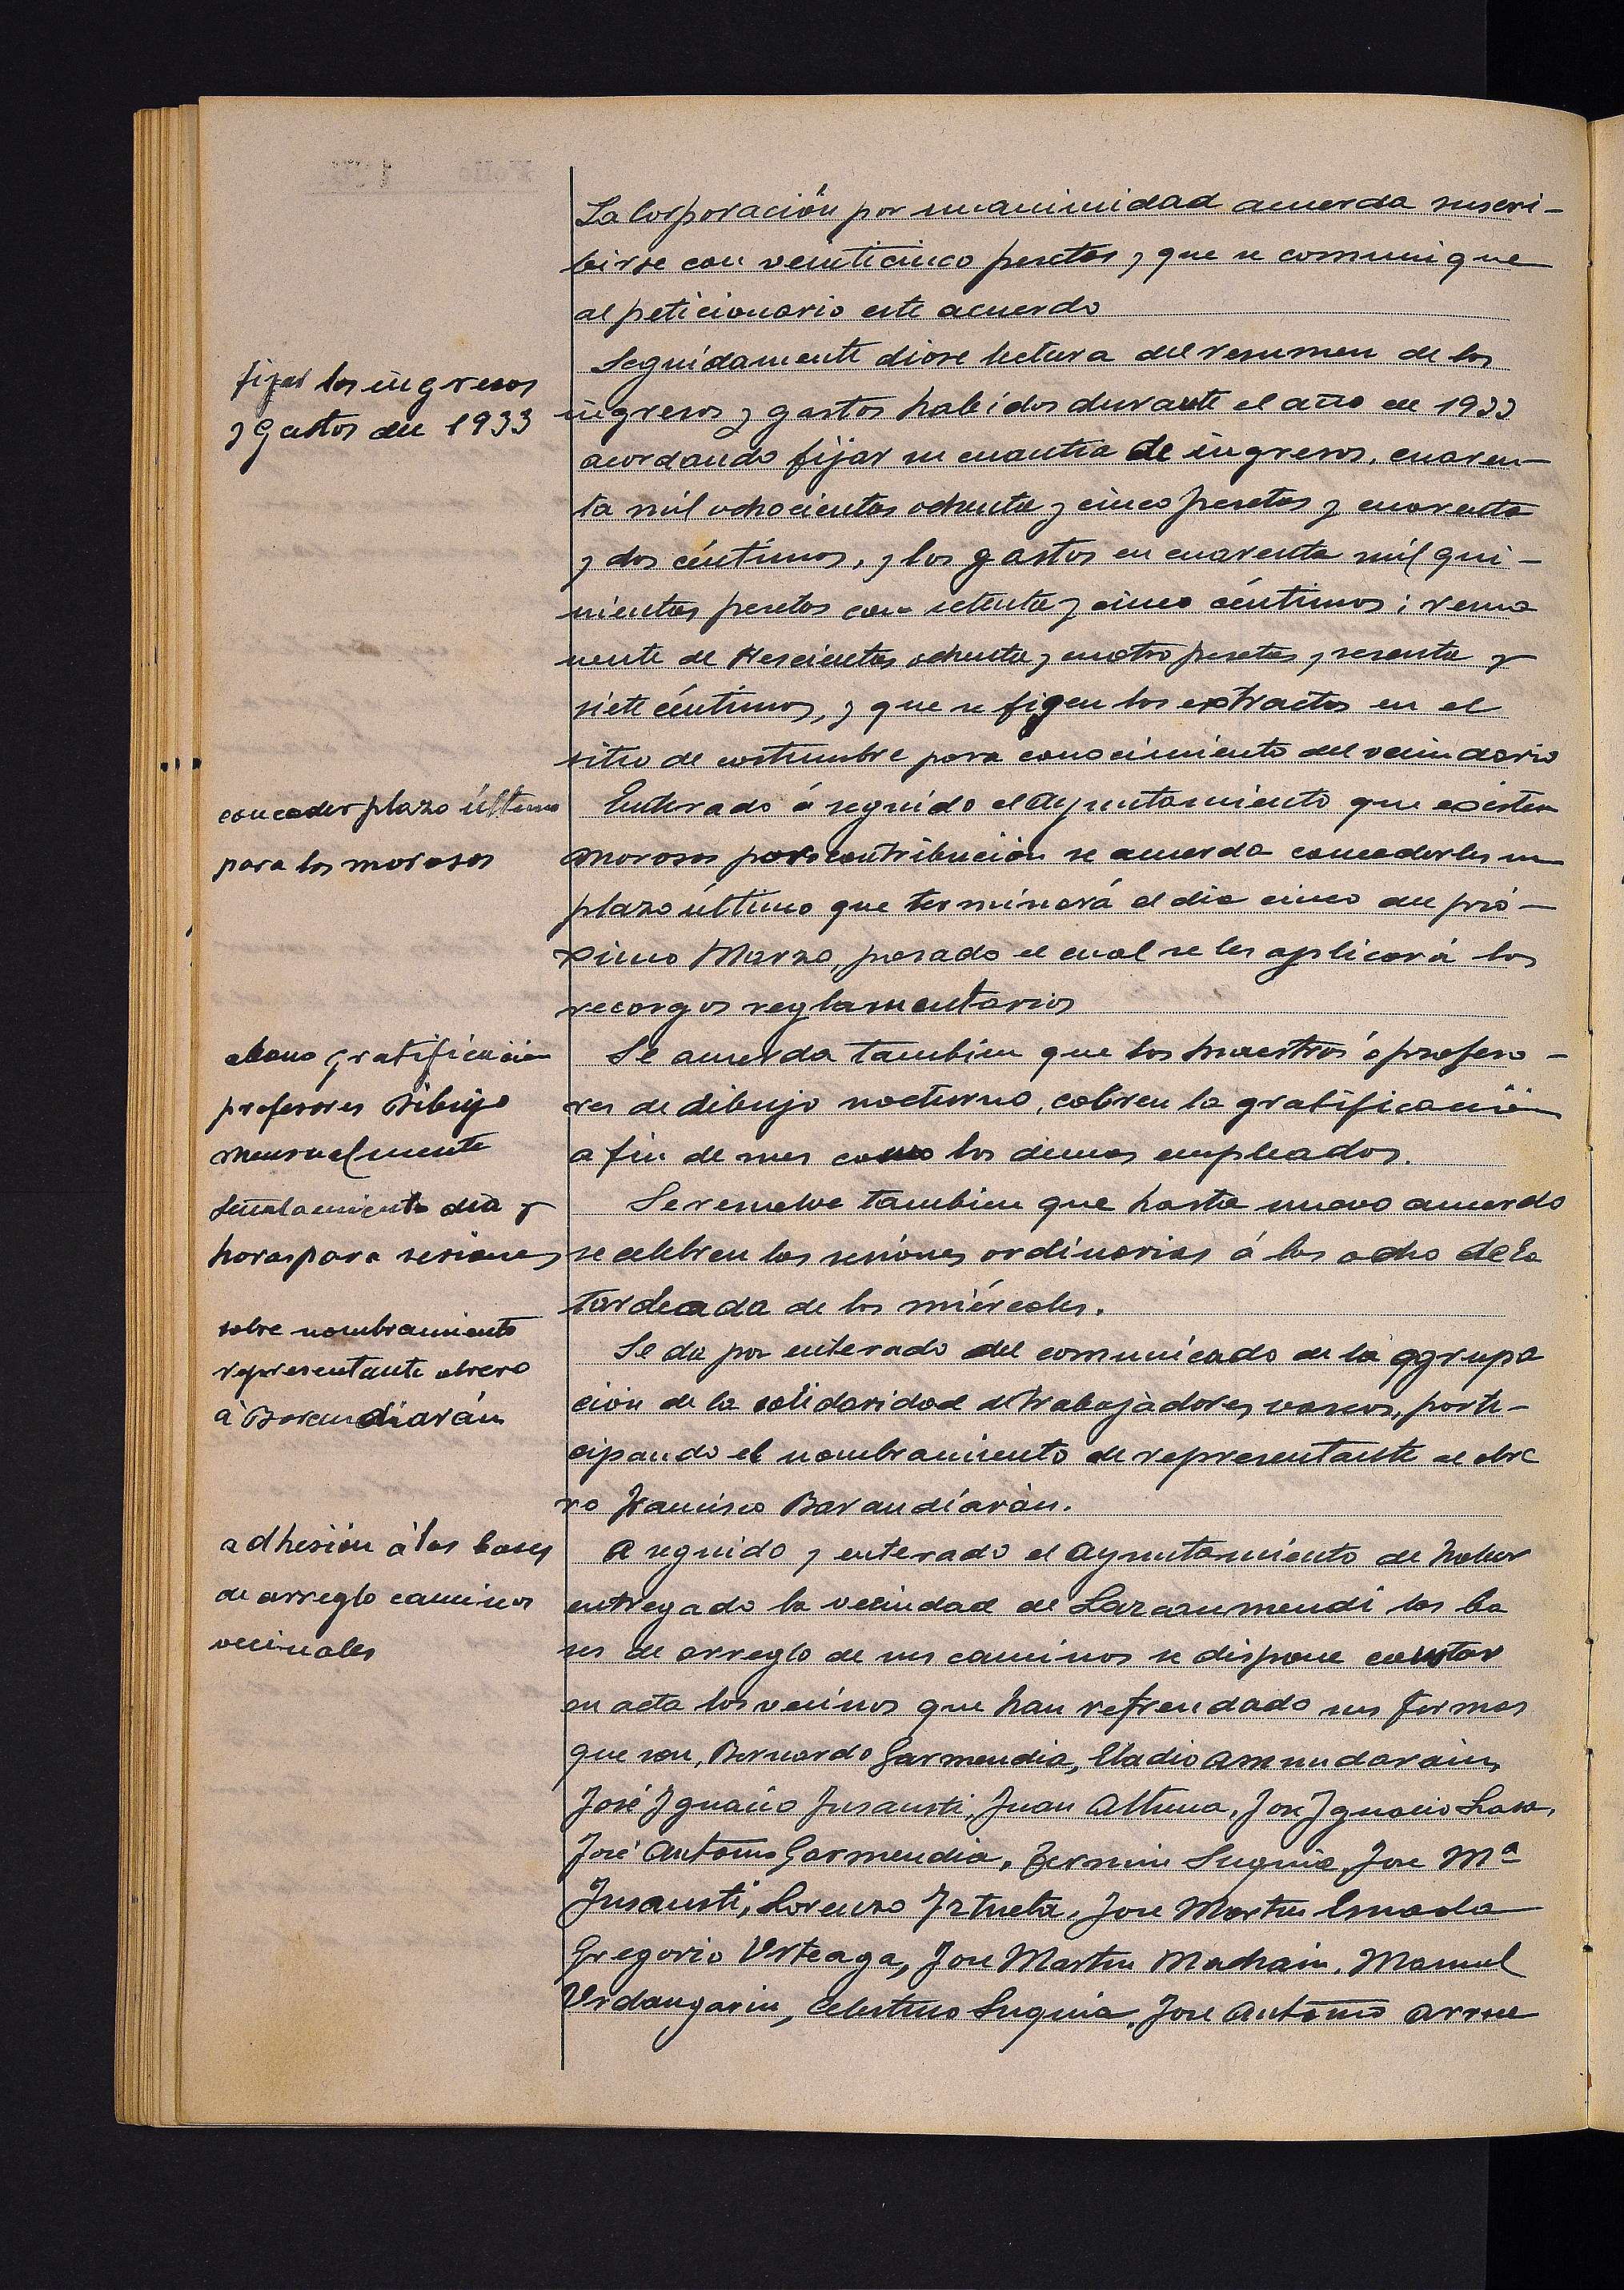 La Corporación por unanimidad acuerda suscri-
birse con veinticinco pesetas y que se comunique
al peticionario este acuerdo
fijar los ingresos
y Gastos de 1933
Seguidamente diose lectura del resumen de los
ingresos y gastos habidos durante el año de 1933
acordando fijar su cuantía de ingresos, cuaren-
ta mil ochocientas ochenta y cinco pesetas y cuarenta
y dos céntimos, y los gastos en cuarenta mil qui-
nientas pesetas con setenta y cinco céntimos; rema
nente de trescientas ochenta y cuatro pesetas y sesenta y
siete céntimos, y que se figen los extractos en el
sitio de costumbre para conocimiento del vecindario
conceder plazo último
para los morosos
Enterado á seguido el Ayuntamiento que existen
morosos por contribución se acuerda concederles un
plazo último que terminará el dia cinco de pró-
ximo Marzo, pasado el cual se les aplicará los
recargos reglamentarios
abono gratificación
profesores Dibujo
mensualmente
Se acuerda tambien que los maestros ó profeso-
res de dibujo nocturno, cobren la gratificación
a fin de mes como los demas empleados.
Señalamiento dia y
horas para sesiones
Se resuelve tambien que hasta nuevo acuerdo
se celebren las sesiones ordinarias á las ocho de la
tardeada de los miércoles.
sobre nombramiento
representante obrero
á Barandiarán
Se da por enterado del comunicado de la agrupa
ción de la solidaridad de trabajadores vascos, parti-
cipando el nombramiento de representante al obre
ro Francisco Barandíarán.
adhesión á las bases
de arreglo caminos
vecinales
A seguido y enterado el Ayuntamiento de haber
entregado la vecindad de Lazcaumendi las ba
ses de arreglo de sus caminos se dispone constar
en acta los vecinos que han refrendado sus firmas
que son, Bernardo Garmendia, Eladio Amundarain,
José Ignacio Insausti, Juan Altuna, José Ignacio Lasa,
José Antonio Garmendia, Fermin Suquia, Jose Mª
Insausti, Lorenzo Iztueta, Jose Martin
Gregorio Urteaga, Jose Martin Machain, Manuel
Urdangarin, Celestino Suquia, Jose Antonio Arrue